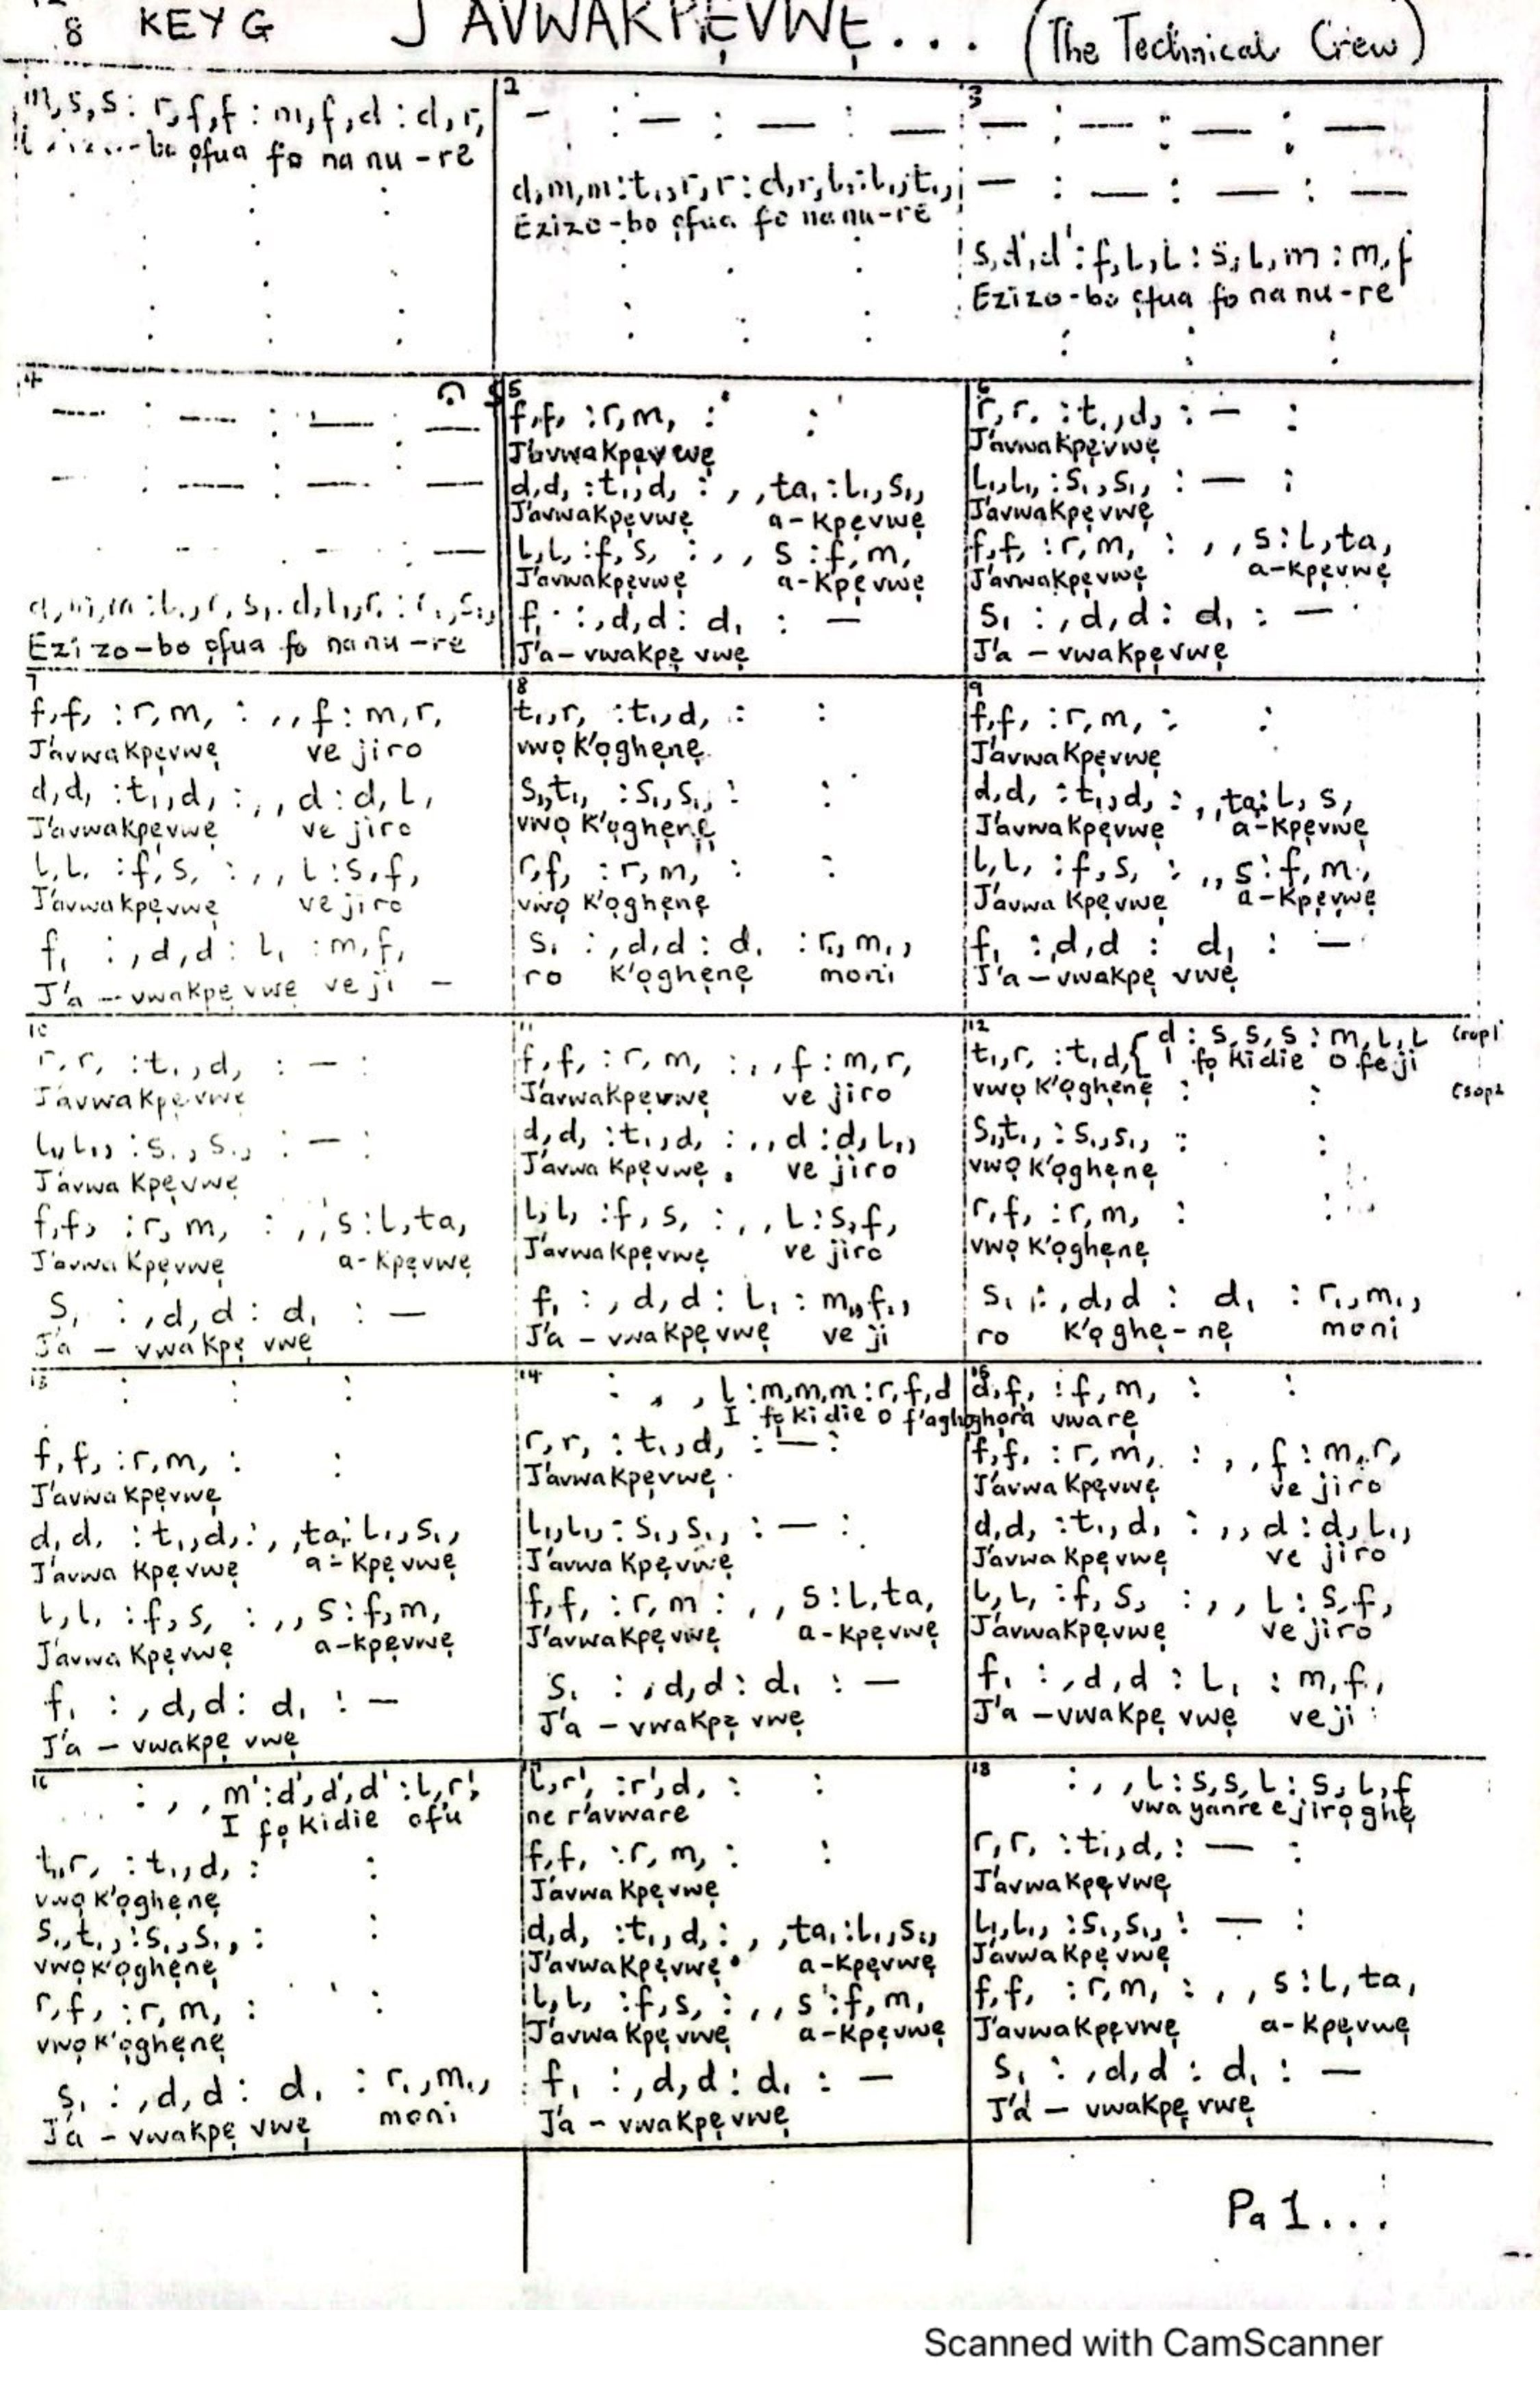 8 KEY G J'AVWAKPẸVWẸ... (The Technical Crew)
m,s,s: r,f,f : m,f,d : d,r,
-bo ọfua fo na nu-re
2
- : — : — : —
d,m,m:t₁,r,r:d,r,l₁:l₁,t₁,
Ezizo-bo ọfua fo nanu-re
3
— : — : — : —
— : — : — : —
s,d',d':f,l,l:s,l,m:m,f
Ezizo-bo ọfua fo na nu-re
4
— : — : — : —
— : — : — : —
Ezizo-bo ọfua fo nanu-re
5
f,f, :r,m, : :
J'avwakpẹvwẹ
d,d, :t₁,d, : , ,ta₁:l₁,s₁,
J'avwakpẹvwẹ a-kpẹvwẹ
l,l, :f,s, : , , s:f,m,
J'avwakpẹvwẹ a-kpẹvwẹ
f₁ : ,d,d: d₁ : —
J'a-vwakpẹ vwẹ
6
r,r, :t₁,d, : — :
J'avwakpẹvwẹ
l₁,l₁, :s₁,s₁, : — :
J'avwakpẹvwẹ
f,f, :r,m, : , ,s:l,ta,
J'avwakpẹvwẹ a-kpẹvwẹ
s₁ : ,d,d: d₁ : —
J'a - vwakpẹvwẹ
7
f,f, :r,m, : , ,f:m,r,
J'avwakpẹvwẹ ve jiro
d,d, :t₁,d, : , ,d:d,l,
J'avwakpẹvwẹ ve jiro
l,l, :f,s, : , ,l:s,f,
J'avwakpẹvwẹ ve jiro
f₁ : ,d,d: l₁ :m,f,
J'a - vwakpẹ vwẹ ve ji -
8
t₁,r, :t₁,d, : :
vwọ k'ọghẹnẹ
s₁,t₁, :s₁,s₁, : :
vwọ k'ọghẹnẹ
r,f, :r,m, : :
vwọ k'ọghẹnẹ
s₁ : ,d,d: d₁ :r₁,m₁,
ro k'ọghẹnẹ moni
9
f,f, :r,m, : :
J'avwakpẹvwẹ
d,d, :t₁,d, : , ,ta:l,s,
J'avwakpẹvwẹ a-kpẹvwẹ
l,l, :f,s, : , ,s:f,m,
J'avwakpẹvwẹ a-kpẹvwẹ
f₁ : ,d,d : d₁ : —
J'a-vwakpẹ vwẹ
10
r,r, :t₁,d, : — :
J'avwakpẹvwẹ
l₁,l₁, :s₁,s₁, : — :
J'avwakpẹvwẹ
f,f, :r,m, : , ,s:l,ta,
J'avwakpẹvwẹ a-kpẹvwẹ
s₁ : ,d,d: d₁ : —
J'a - vwakpẹ vwẹ
11
f,f, :r,m, : , ,f:m,r,
J'avwakpẹvwẹ ve jiro
d,d, :t₁,d, : , ,d:d,l₁,
J'avwakpẹvwẹ ve jiro
l,l, :f,s, : , ,l:s,f,
J'avwakpẹvwẹ ve jiro
f₁ : ,d,d: l₁ : m₁,f₁,
J'a - vwakpẹvwẹ ve ji
12
d : s,s,s:m,l,l
t₁,r, :t₁d,{ I fọ kidie o fe ji
vwọ k'ọghẹnẹ : : (sop2
s₁,t₁, :s₁,s₁, : :
vwọ k'ọghẹnẹ
r,f, :r,m, : :
vwọ k'ọghẹnẹ
s₁ : ,d,d : d₁ : r₁,m₁,
ro k'ọghẹ-nẹ moni
13
: : :
f,f, :r,m, : :
J'avwakpẹvwẹ
d,d, :t₁,d, : , ,ta₁:l₁,s₁,
J'avwakpẹvwẹ a-kpẹvwẹ
l,l, :f,s, : , ,s:f,m,
J'avwakpẹvwẹ a-kpẹvwẹ
f₁ : ,d,d: d₁ : —
J'a - vwakpẹ vwẹ
14
: , ,l:m,m,m:r,f,d
I fọ kidie o f'agh
r,r, :t₁,d, : — :
J'avwakpẹvwẹ
l₁,l₁, :s₁,s₁, : — :
J'avwakpẹvwẹ
f,f, :r,m : , , s:l,ta,
J'avwakpẹvwẹ a-kpẹvwẹ
s₁ : ,d,d: d₁ : —
J'a - vwakpẹ vwẹ
15
d,f, :f,m, : :
ghọra vwarẹ
f,f, :r,m, : , ,f:m,r,
J'avwakpẹvwẹ ve jiro
d,d, :t₁,d, : , ,d:d,l₁,
J'avwakpẹvwẹ ve jiro
l,l, :f,s, : , ,l:s,f,
J'avwakpẹvwẹ ve jiro
f₁ : ,d,d : l₁ : m,f,
J'a -vwakpẹ vwẹ ve ji
16
: , ,m':d',d',d':l,r',
I fọ kidie ofu
t₁,r, :t₁,d, : :
vwọ k'ọghẹnẹ
s₁,t₁, :s₁,s₁, : :
vwọ k'ọghẹnẹ
r,f, :r,m, : :
vwọ k'ọghẹnẹ
s₁ : ,d,d: d₁ : r₁,m₁,
J'a - vwakpẹ vwẹ moni
17
l,r', :r',d, : :
ne r'avware
f,f, :r,m, : :
J'avwakpẹvwẹ
d,d, :t₁,d, : , ,ta₁:l₁,s₁,
J'avwakpẹvwẹ a-kpẹvwẹ
l,l, :f,s, : , ,s:f,m,
J'avwakpẹvwẹ a-kpẹvwẹ
f₁ : ,d,d: d₁ : —
J'a - vwakpẹvwẹ
18
: , ,l:s,s,l:s,l,f
vwa yanre ejirọghẹ
r,r, :t₁,d, : — :
J'avwakpẹvwẹ
l₁,l₁, :s₁,s₁, : — :
J'avwakpẹvwẹ
f,f, :r,m, : , ,s:l,ta,
J'avwakpẹvwẹ a-kpẹvwẹ
s₁ : ,d,d : d₁ : —
J'a - vwakpẹ vwẹ
Pa 1...
Scanned with CamScanner